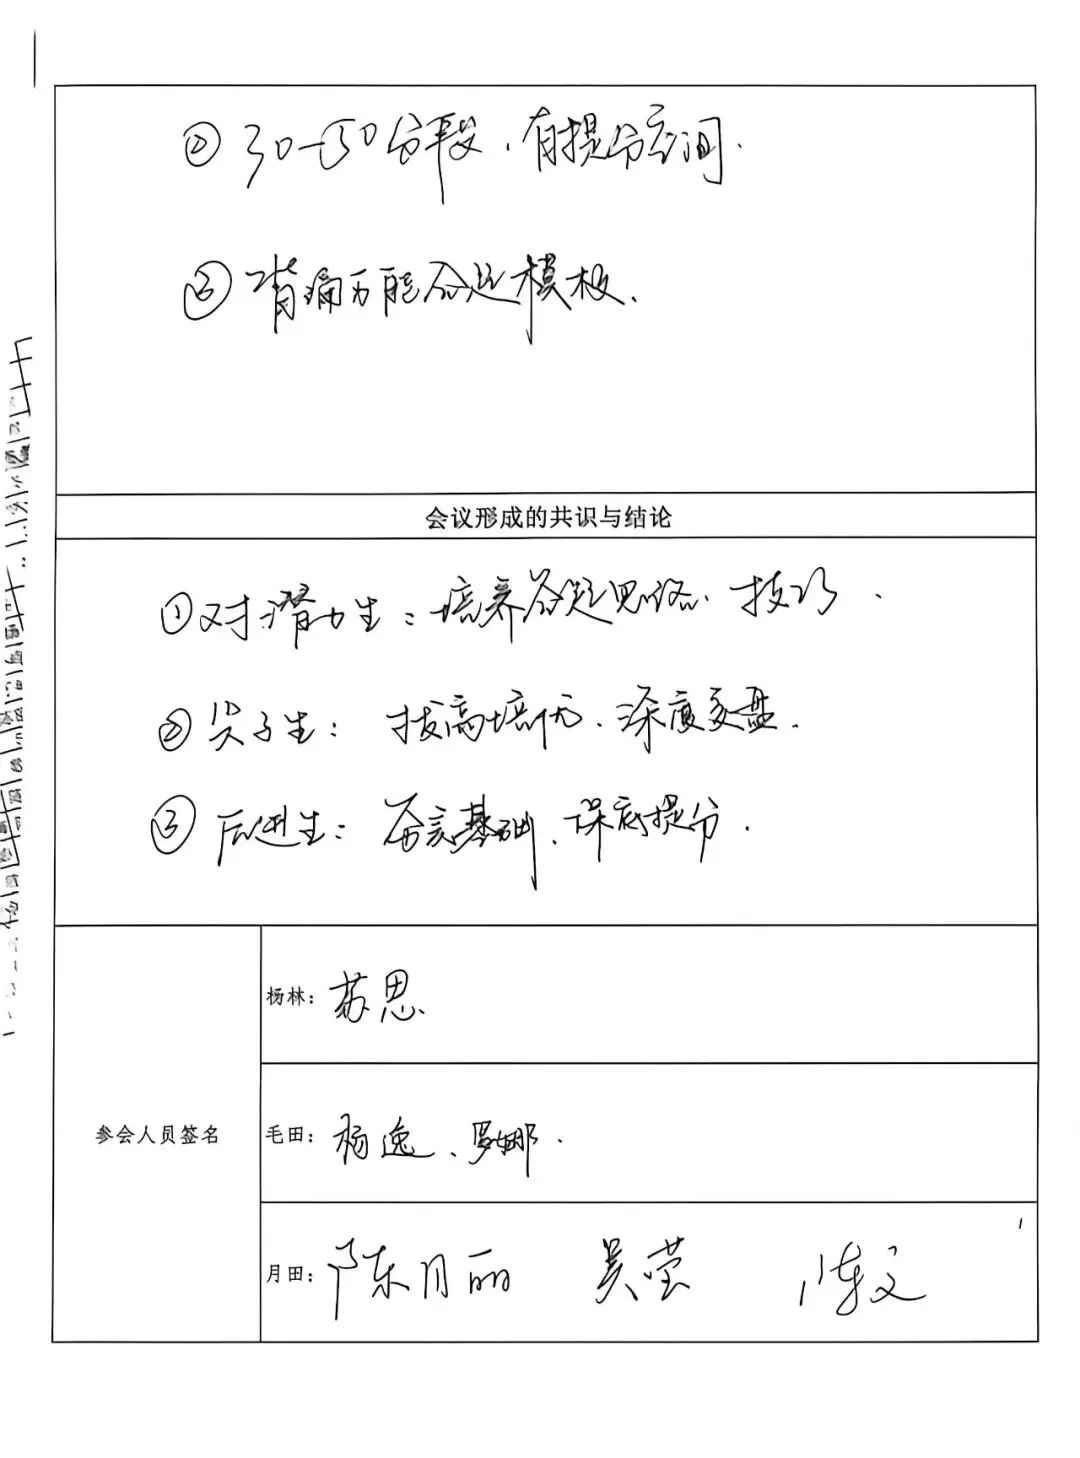 ② 30-50分段，有提分空间.
③ 背诵万能答题模板.
会议形成的共识与结论
① 对潜力生：培养答题思路、技巧.
② 尖子生：拔高培优、深度复盘.
③ 后进生：夯实基础、保底提分.
参会人员签名
杨林：苏思
毛田：杨逸、罗娜.
月田：陈月丽 吴莹 陈文